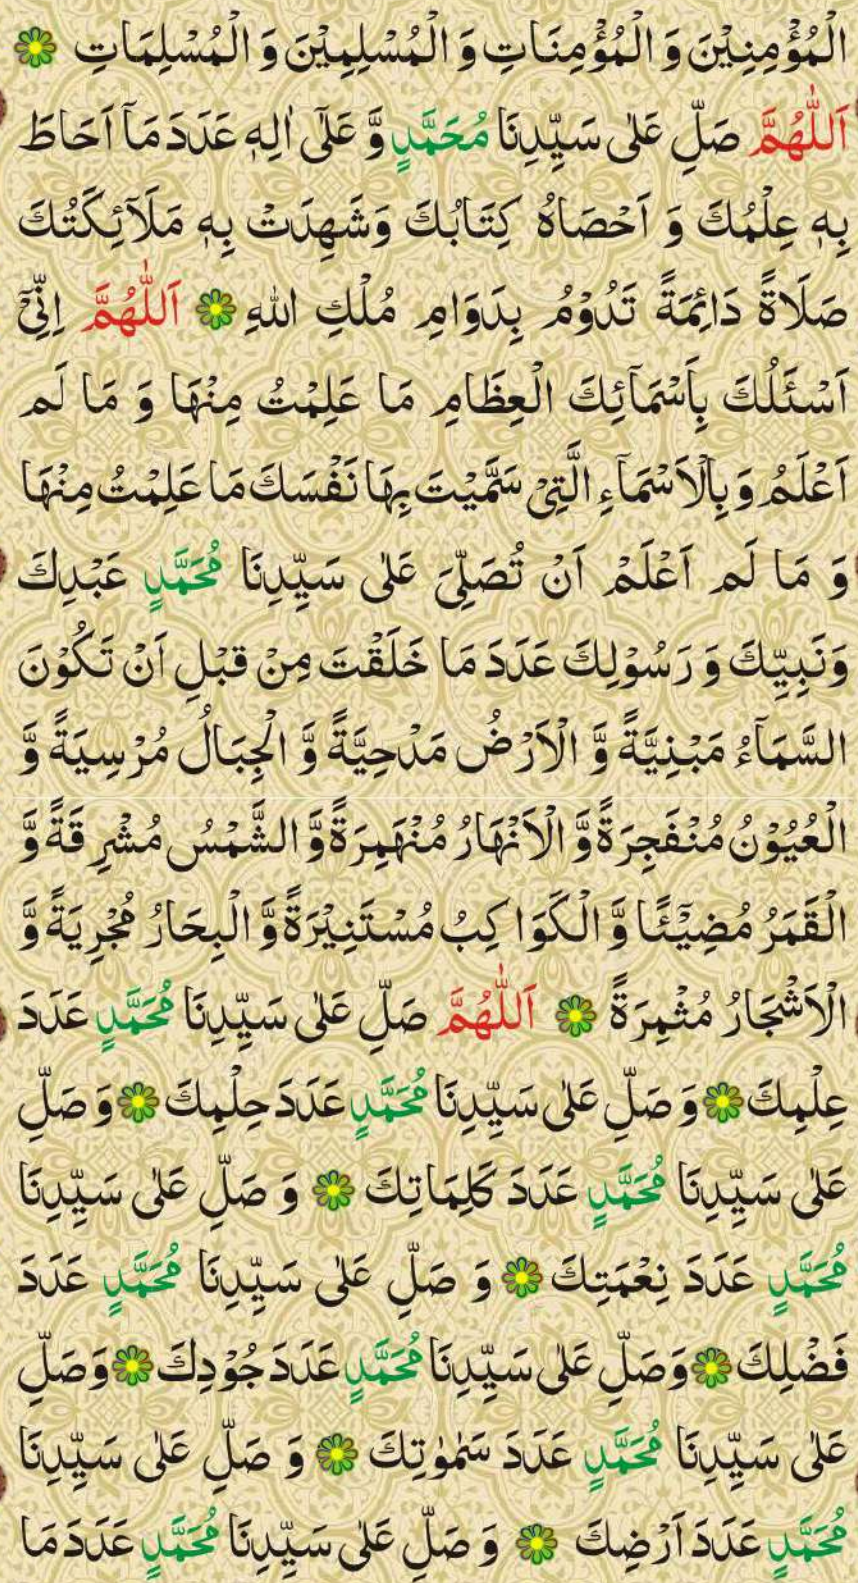 الْمُؤْمِنِيْنَ وَ الْمُؤْمِنَاتِ وَ الْمُسْلِمِيْنَ وَ الْمُسْلِمَاتِ
اَللّٰهُمَّ صَلِّ عَلٰى سَيِّدِنَا مُحَمَّدٍ وَّ عَلٰٓى اٰلِهٖ عَدَدَ مَآ اَحَاطَ
بِهٖ عِلْمُكَ وَ اَحْصَاهُ كِتَابُكَ وَشَهِدَتْ بِهٖ مَلَآئِكَتُكَ
صَلَاةً دَائِمَةً تَدُوْمُ بِدَوَامِ مُلْكِ اللهِ اَللّٰهُمَّ اِنِّيْٓ
اَسْئَلُكَ بِاَسْمَآئِكَ الْعِظَامِ مَا عَلِمْتُ مِنْهَا وَ مَا لَم
اَعْلَمُ وَ بِالْاَسْمَآءِ الَّتِيْ سَمَّيْتَ بِهَا نَفْسَكَ مَا عَلِمْتُ مِنْهَا
وَ مَا لَم اَعْلَمْ اَنْ تُصَلِّيَ عَلٰى سَيِّدِنَا مُحَمَّدٍ عَبْدِكَ
وَنَبِيِّكَ وَ رَسُوْلِكَ عَدَدَ مَا خَلَقْتَ مِنْ قَبْلِ اَنْ تَكُوْنَ
السَّمَآءُ مَبْنِيَّةً وَّ الْاَرْضُ مَدْحِيَّةً وَّ الْجِبَالُ مُرْسِيَةً وَّ
الْعُيُوْنُ مُنْفَجِرَةً وَّ الْاَنْهَارُ مُنْهَمِرَةً وَّ الشَّمْسُ مُشْرِقَةً وَّ
الْقَمَرُ مُضِيْئًا وَّ الْكَوَاكِبُ مُسْتَنِيْرَةً وَّ الْبِحَارُ مُجْرِيَةً وَّ
الْاَشْجَارُ مُثْمِرَةً اَللّٰهُمَّ صَلِّ عَلٰى سَيِّدِنَا مُحَمَّدٍ عَدَدَ
عِلْمِكَ وَ صَلِّ عَلٰى سَيِّدِنَا مُحَمَّدٍ عَدَدَ حِلْمِكَ وَ صَلِّ
عَلٰى سَيِّدِنَا مُحَمَّدٍ عَدَدَ كَلِمَاتِكَ وَ صَلِّ عَلٰى سَيِّدِنَا
مُحَمَّدٍ عَدَدَ نِعْمَتِكَ وَ صَلِّ عَلٰى سَيِّدِنَا مُحَمَّدٍ عَدَدَ
فَضْلِكَ وَصَلِّ عَلٰى سَيِّدِنَا مُحَمَّدٍ عَدَدَ جُوْدِكَ وَصَلِّ
عَلٰى سَيِّدِنَا مُحَمَّدٍ عَدَدَ سَمٰوٰتِكَ وَ صَلِّ عَلٰى سَيِّدِنَا
مُحَمَّدٍ عَدَدَ اَرْضِكَ وَ صَلِّ عَلٰى سَيِّدِنَا مُحَمَّدٍ عَدَدَ مَا